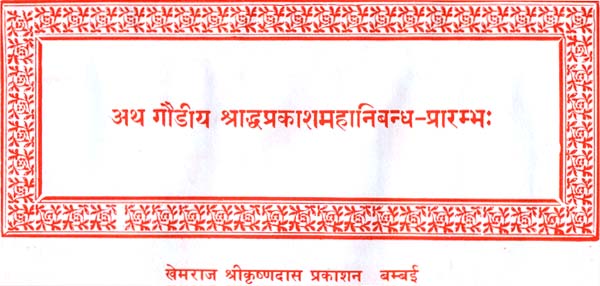 अथ गौडीय श्राद्धप्रकाशमहानिबन्ध-प्रारम्भः
खेमराज श्रीकृष्णदास प्रकाशन बम्बई